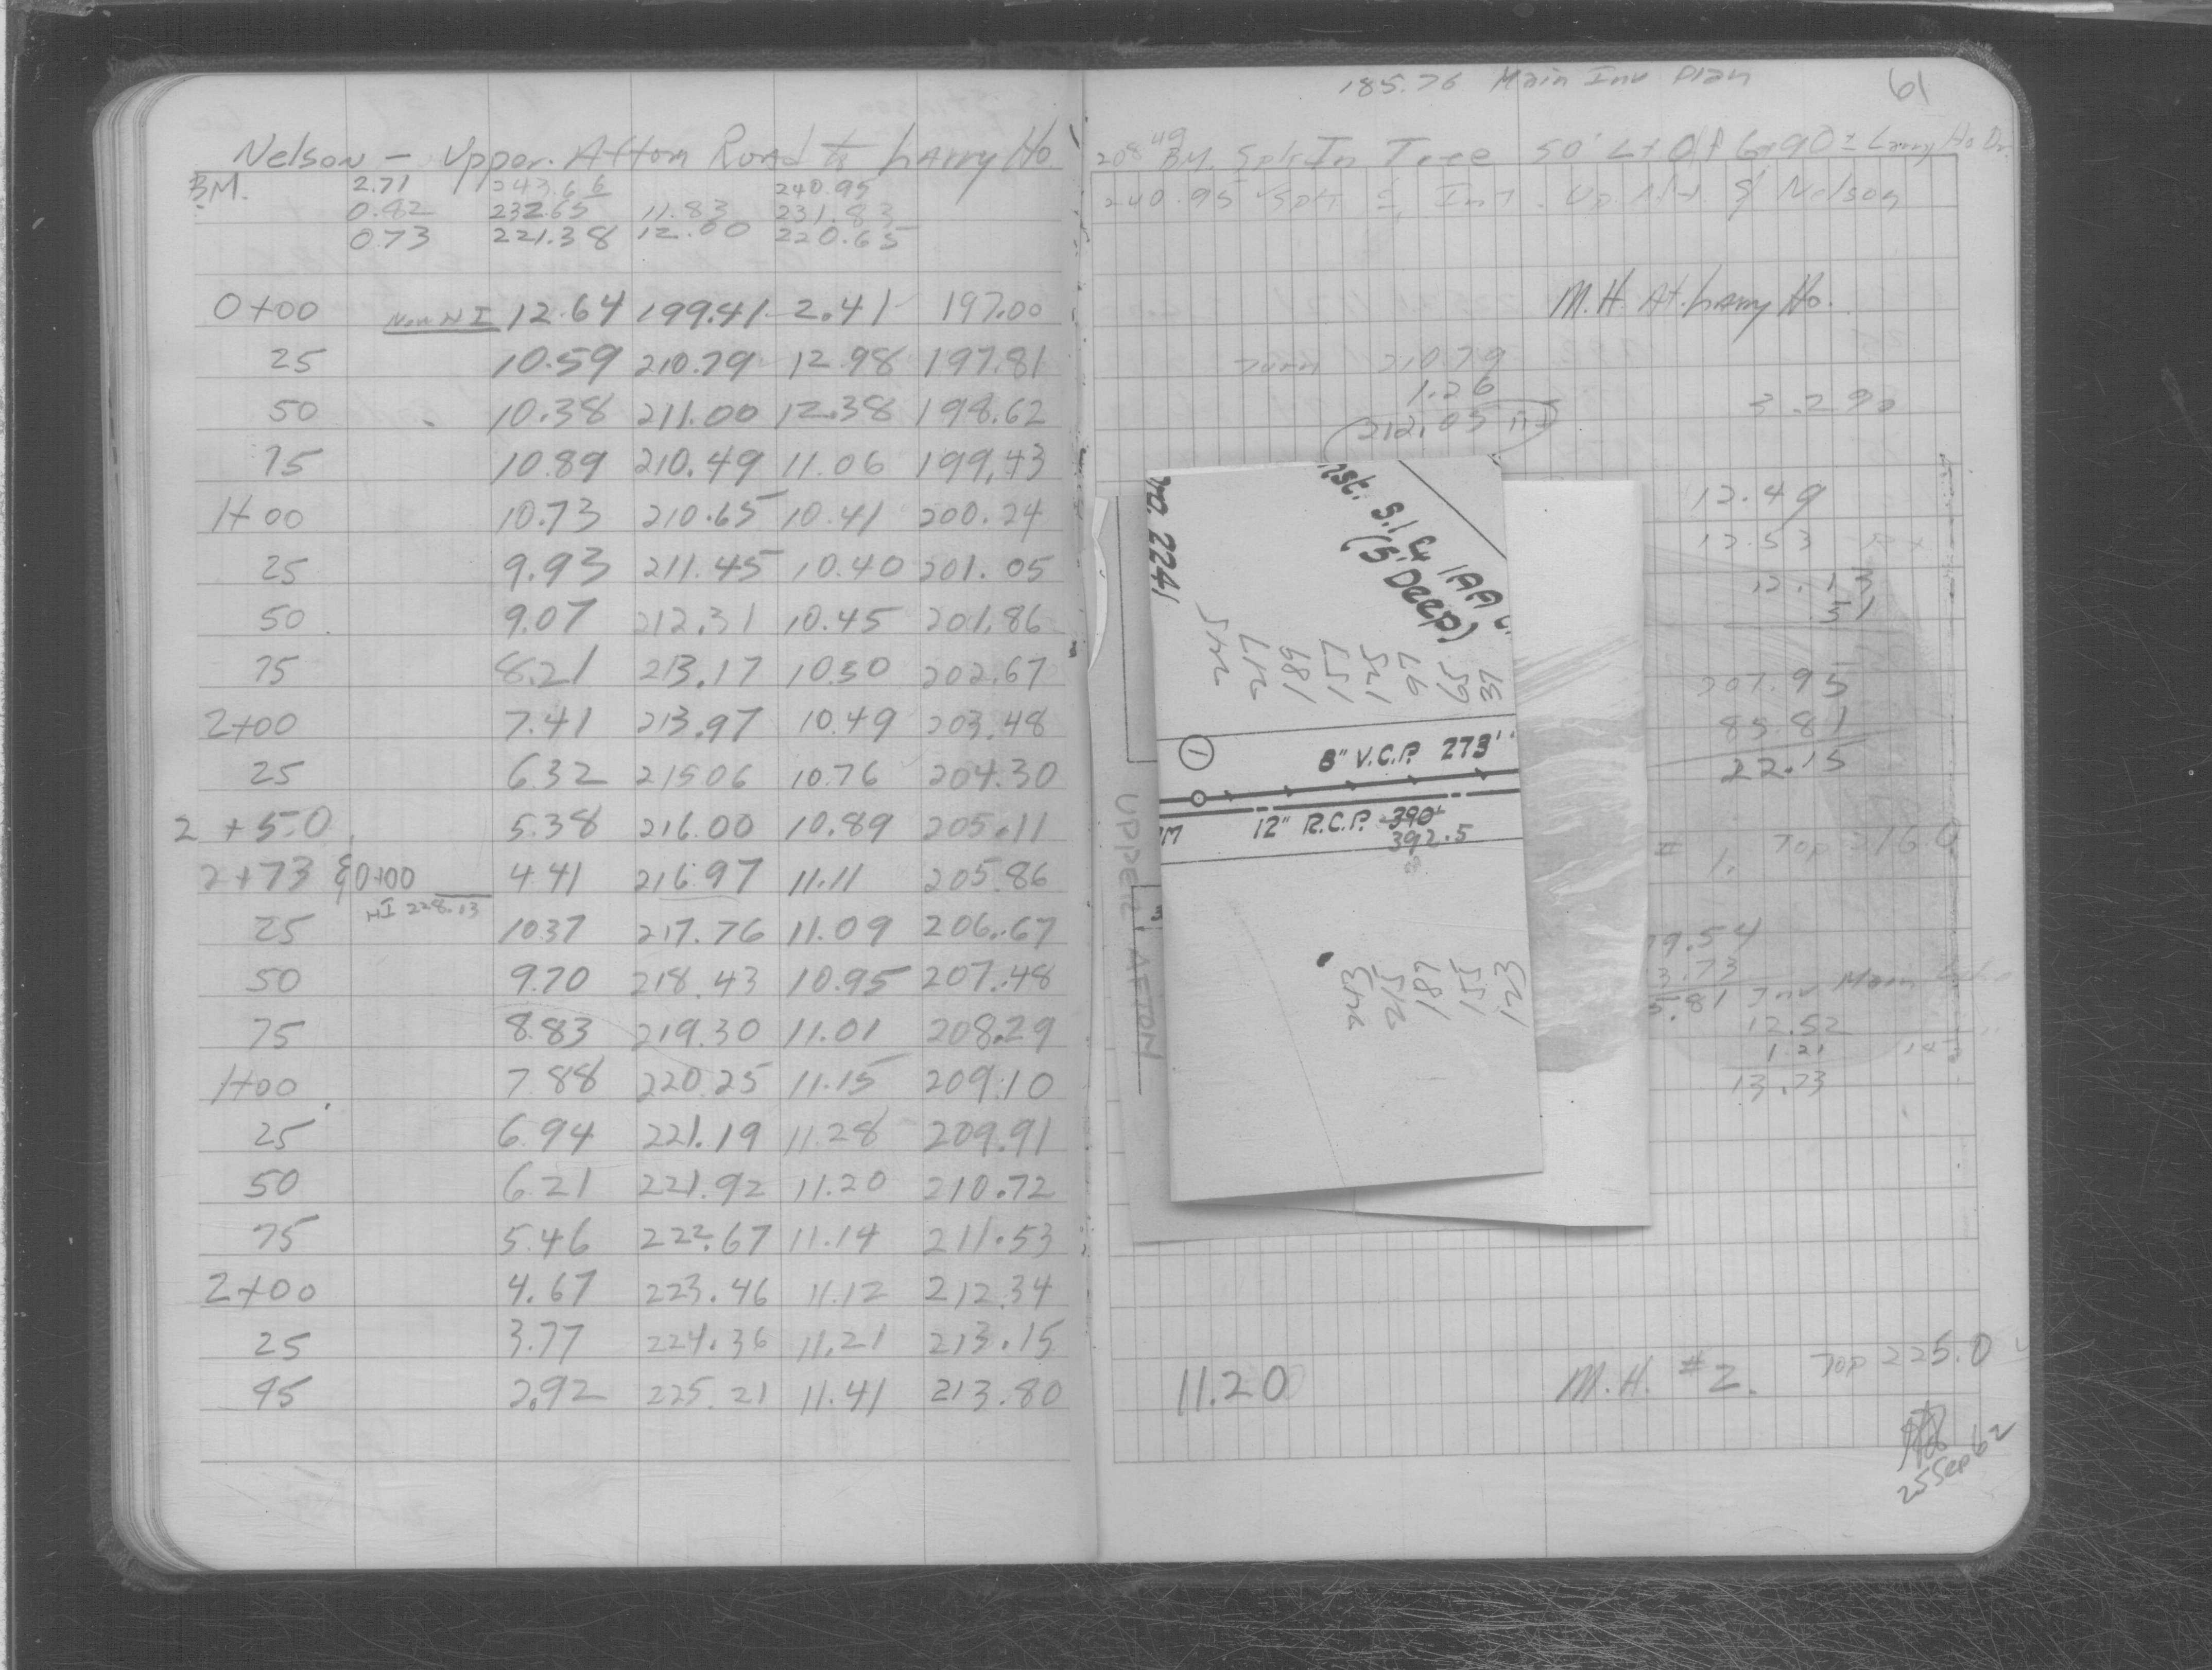 Nelson - Upper. Afton Road to Larry Ho
B.M. 2.71 243.66 240.95
0.82 232.65 11.83 231.83
0.73 221.38 12.00 220.65
0+00 New HI 12.64 199.41 2.41 197.00
25 10.59 210.79 12.98 197.81
50 10.38 211.00 12.38 198.62
75 10.89 210.49 11.06 199.43
1+00 10.73 210.65 10.41 200.24
25 9.93 211.45 10.40 201.05
50 9.07 212.31 10.45 201.86
75 8.21 213.17 10.50 202.67
2+00 7.41 213.97 10.49 203.48
25 6.32 215.06 10.76 204.30
2+50 5.38 216.00 10.89 205.11
2+73 & 0+00 4.41 216.97 11.11 205.86
HI 228.13
25 10.37 217.76 11.09 206.67
50 9.70 218.43 10.95 207.48
75 8.83 219.30 11.01 208.29
1+00 7.88 220.25 11.15 209.10
25 6.94 221.19 11.28 209.91
50 6.21 221.92 11.20 210.72
75 5.46 222.67 11.14 211.53
2+00 4.67 223.46 11.12 212.34
25 3.77 224.36 11.21 213.15
45 2.92 225.21 11.41 213.80
185.76 Main Inv Plan
61
208.49 B.M. Spk In Tree 50' Lt Of 6+90± Larry Ho Dr.
240.95 Spk ℄ Int. Up Aft. & Nelson
M.H. At. Larry Ho.
Turn 210.79
1.26
212.05 HI
3.290
12.49
12.53
12.13
.51
207.95
85.81
22.15
# 1. Top 216.0
9.54
3.73
5.81 Inv Main
12.52
1.21
13.73
11.20 M.H. #2. Top 225.0
25 Sep 62
2241
nst. S.I. & 1AA
(5' Deep)
245
217
189
157
125
97
65
37
1
8" V.C.P. 273'
12" R.C.P. 390'
392.5
243
215
187
155
123
UPPER AFTON